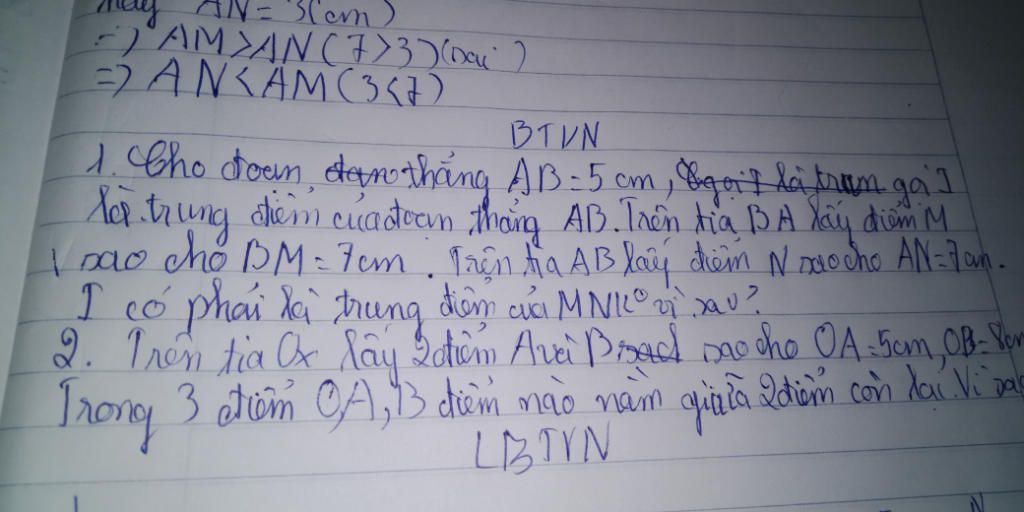 máy AN = 3(cm)
=) AM > AN (7 > 3) (sai)
=) AN < AM (3 < 7)
BTVN
1. Cho đoạn thẳng AB = 5 cm, gọi I
là trung điểm của đoạn thẳng AB. Trên tia BA lấy điểm M
sao cho BM = 7cm. Trên tia AB lấy điểm N sao cho AN = 7cm.
I có phải là trung điểm của MN K° vì sao?
2. Trên tia Ox lấy 2 điểm A và B sao cho OA = 5cm, OB = 8cm
Trong 3 điểm O, A, B điểm nào nằm giữa 2 điểm còn lại. Vì sao
LBTVN